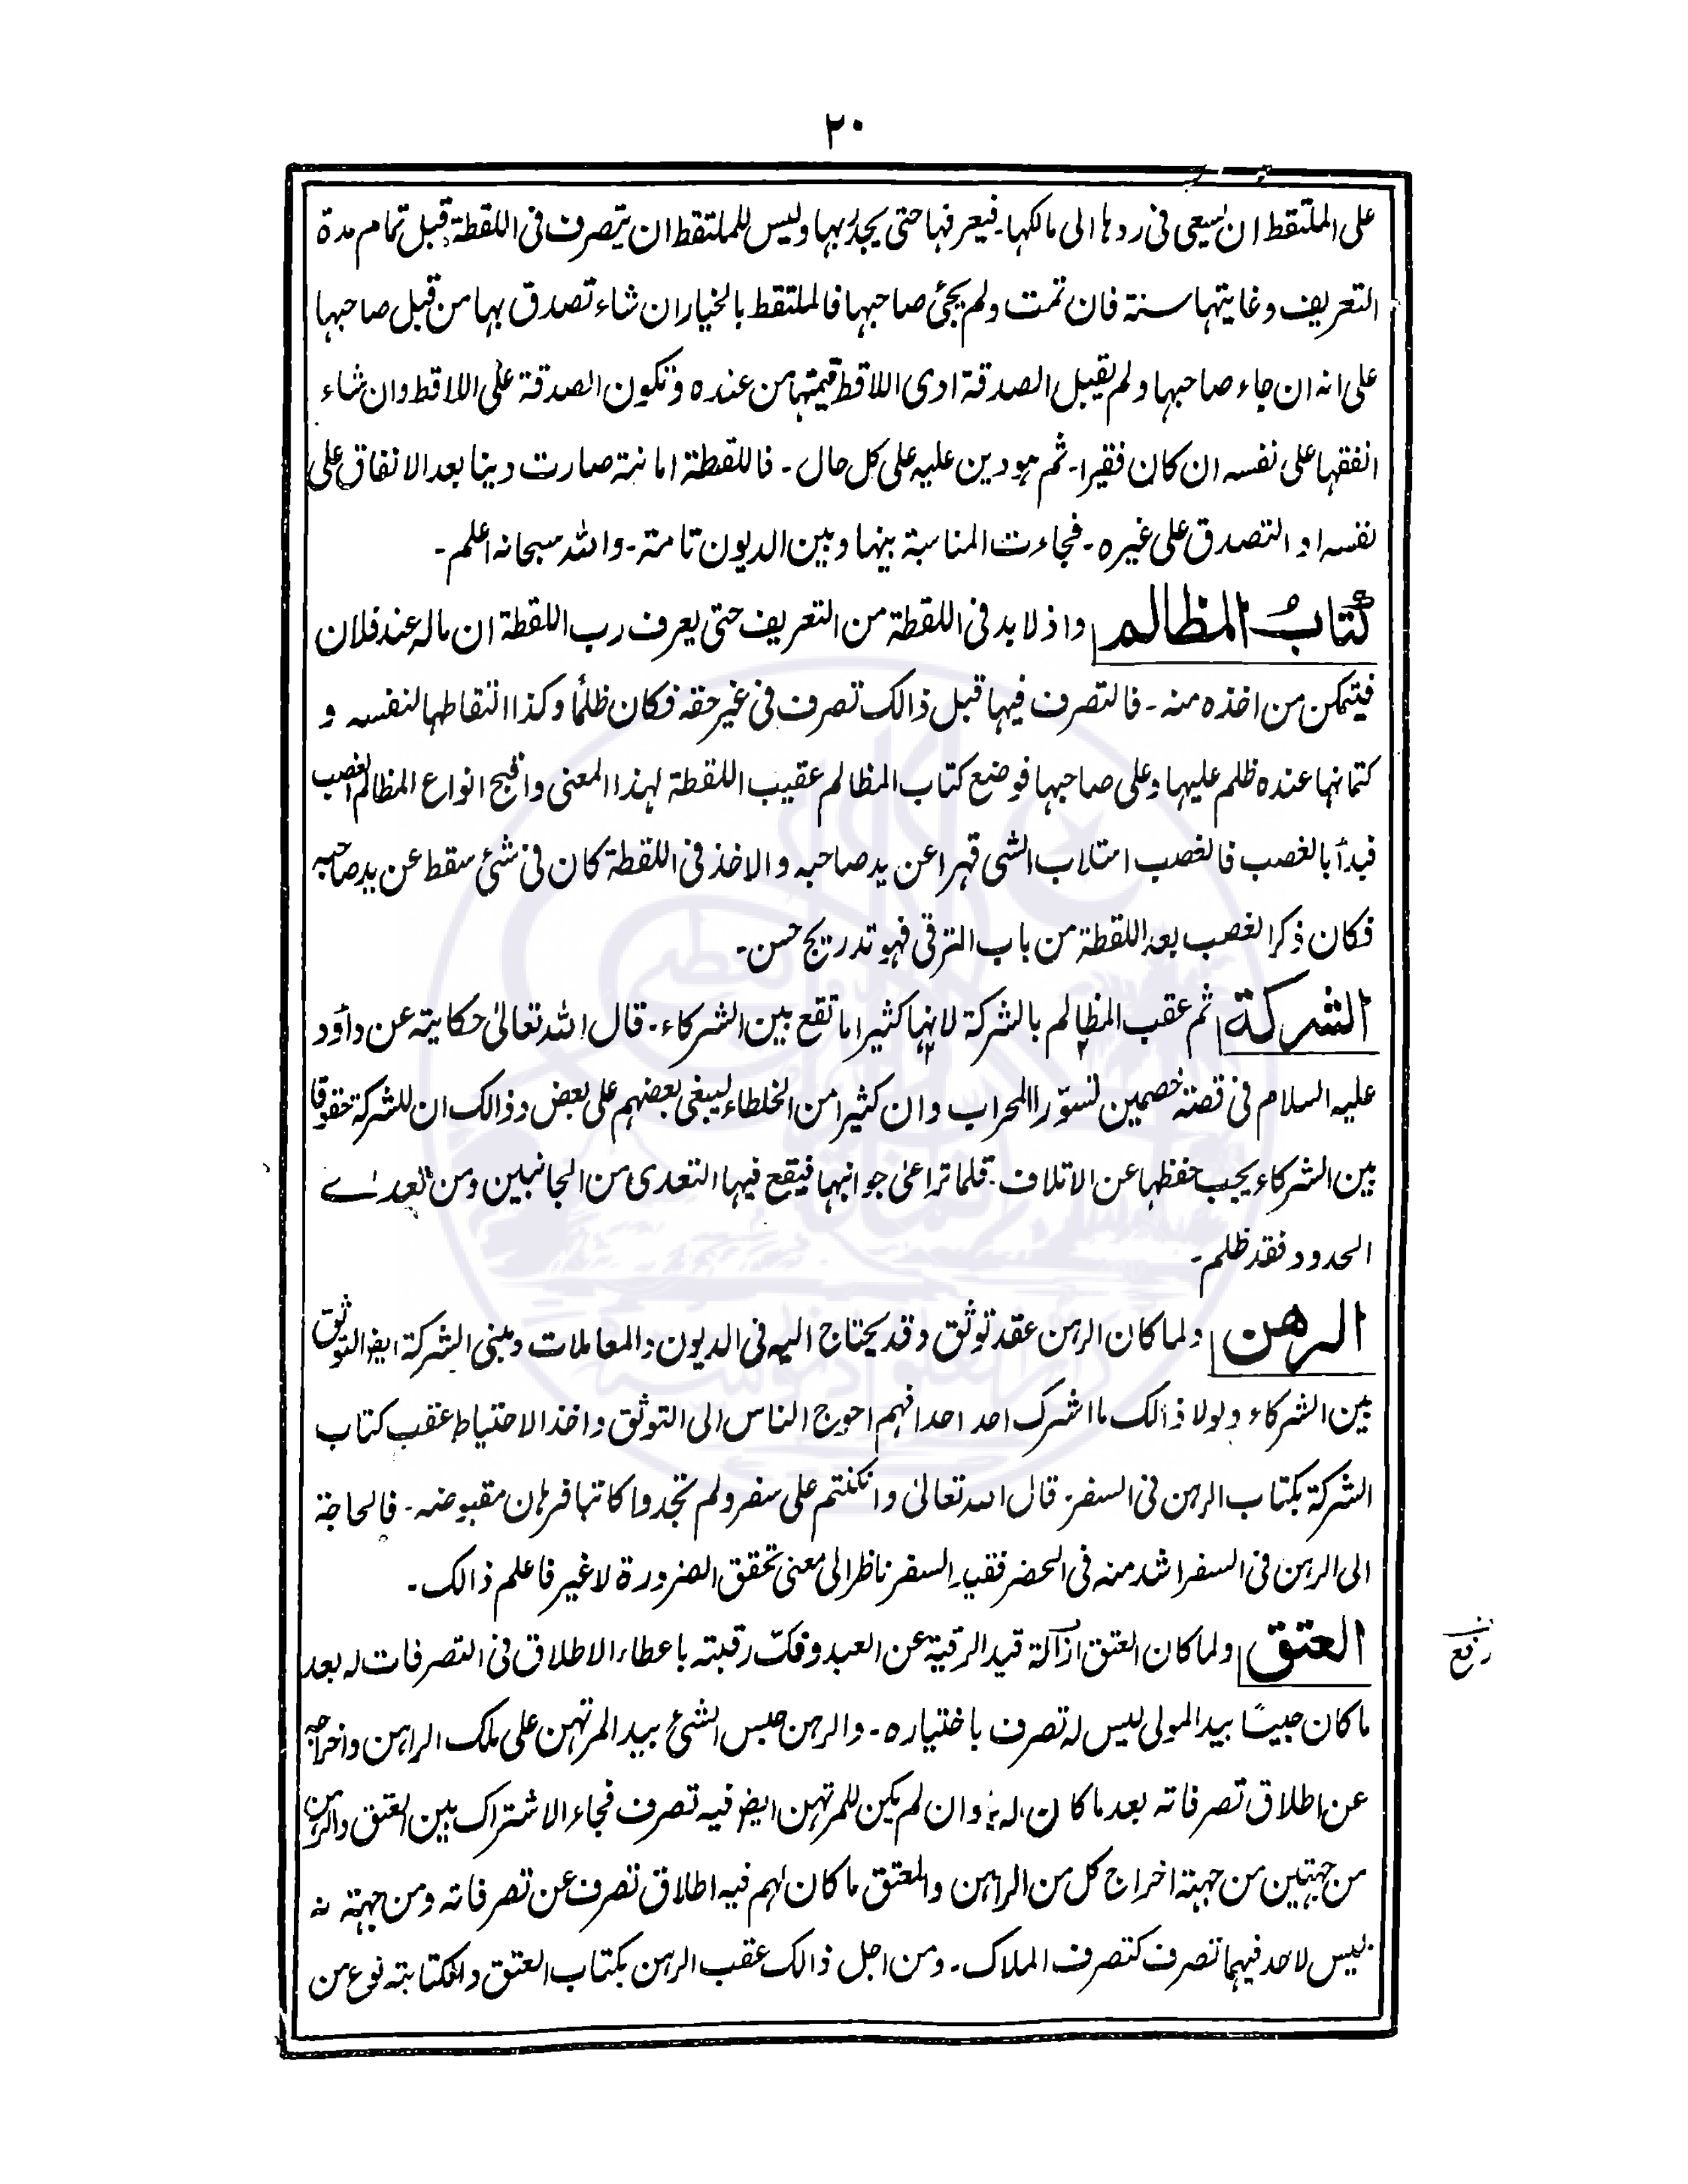 ٢٠
على الملتقط ان يسعى فى ردها الى مالكها۔ فيعرفها حتى يجد ربها وليس للملتقط ان يتصرف فى اللقطة قبل تمام مدة
التعريف وغايتها سنة فان تمت ولم يجئ صاحبها فالملتقط بالخيار ان شاء تصدق بها من قبل صاحبها
على انه ان جاء صاحبها ولم يقبل الصدقة ادى اللاقط قيمتها من عنده وتكون الصدقة على اللاقط وان شاء
انفقها على نفسه ان كان فقيرا۔ ثم هو دين عليه على كل حال۔ فاللقطة امانة صارت دينا بعد الانفاق على
نفسه او التصدق على غيره۔ فجاءت المناسبة بينها وبين الديون تامة۔ والله سبحانه اعلم۔
كتابُ المظالم واذ لا بد فى اللقطة من التعريف حتى يعرف رب اللقطة ان ماله عند فلان
فيتمكن من اخذه منه۔ فالتصرف فيها قبل ذالك تصرف فى غير حقه فكان ظلمًا وكذا التقاطها لنفسه و
كتمانها عنده ظلم عليها وعلى صاحبها فوضع كتاب المظالم عقيب اللقطة لهذا المعنى واقبح انواع المظالم الغصب
فبدأ بالغصب فالغصب استلاب الشى قهرا عن يد صاحبه والاخذ فى اللقطة كان فى شئ سقط عن يد صاحبه
فكان ذكر الغصب بعد اللقطة من باب الترقى فهو تدريج حسن۔
الشركة ثم عقب المظالم بالشركة لانها كثيرا ما تقع بين الشركاء۔ قال الله تعالىٰ حكاية عن داؤد
عليه السلام فى قصة خصمين تسوّرا المحراب وان كثيرا من الخلطاء ليبغى بعضهم على بعض وذالك ان للشركة حقوقا
بين الشركاء يجب حفظها عن الاتلاف۔ قلما تراعى جوانبها فيقع فيها التعدى من الجانبين ومن تعدے
الحدود فقد ظلم۔
الرهن ولما كان الرهن عقد توثق وقد يحتاج اليه فى الديون والمعاملات ومبنى الشركة ايضا التوثق
بين الشركاء ولولا ذالك ما اشرك احد احدا فهم احوج الناس الى التوثق واخذ الاحتياط عقب كتاب
الشركة بكتاب الرهن فى السفر۔ قال الله تعالىٰ وان كنتم على سفر ولم تجدوا كاتبا فرهٰن مقبوضة۔ فالحاجة
الى الرهن فى السفر اشد منه فى الحضر فقيد السفر ناظر الى معنى تحقق الضرورة لا غير فاعلم ذالك۔
العتق ولما كان العتق ازالة قيد الرقية عن العبد وفكّ رقبته باعطاء الاطلاق فى التصرفات له بعد
ما كان حبيسًا بيد المولى ليس له تصرف باختياره۔ والرهن حبس الشئ بيد المرتهن على ملك الراهن واخراجه
عن اطلاق تصرفاته بعد ما كان له وان لم يكن للمرتهن ايضا فيه تصرف فجاء الاشتراك بين العتق والرهن
من جهتين من جهة اخراج كل من الراهن والمعتق ما كان لهم فيه اطلاق تصرف عن تصرفاته ومن جهة
ليس لاحد فيهما تصرف كتصرف الملاك۔ ومن اجل ذالك عقب الرهن بكتاب العتق والكتابة نوع من